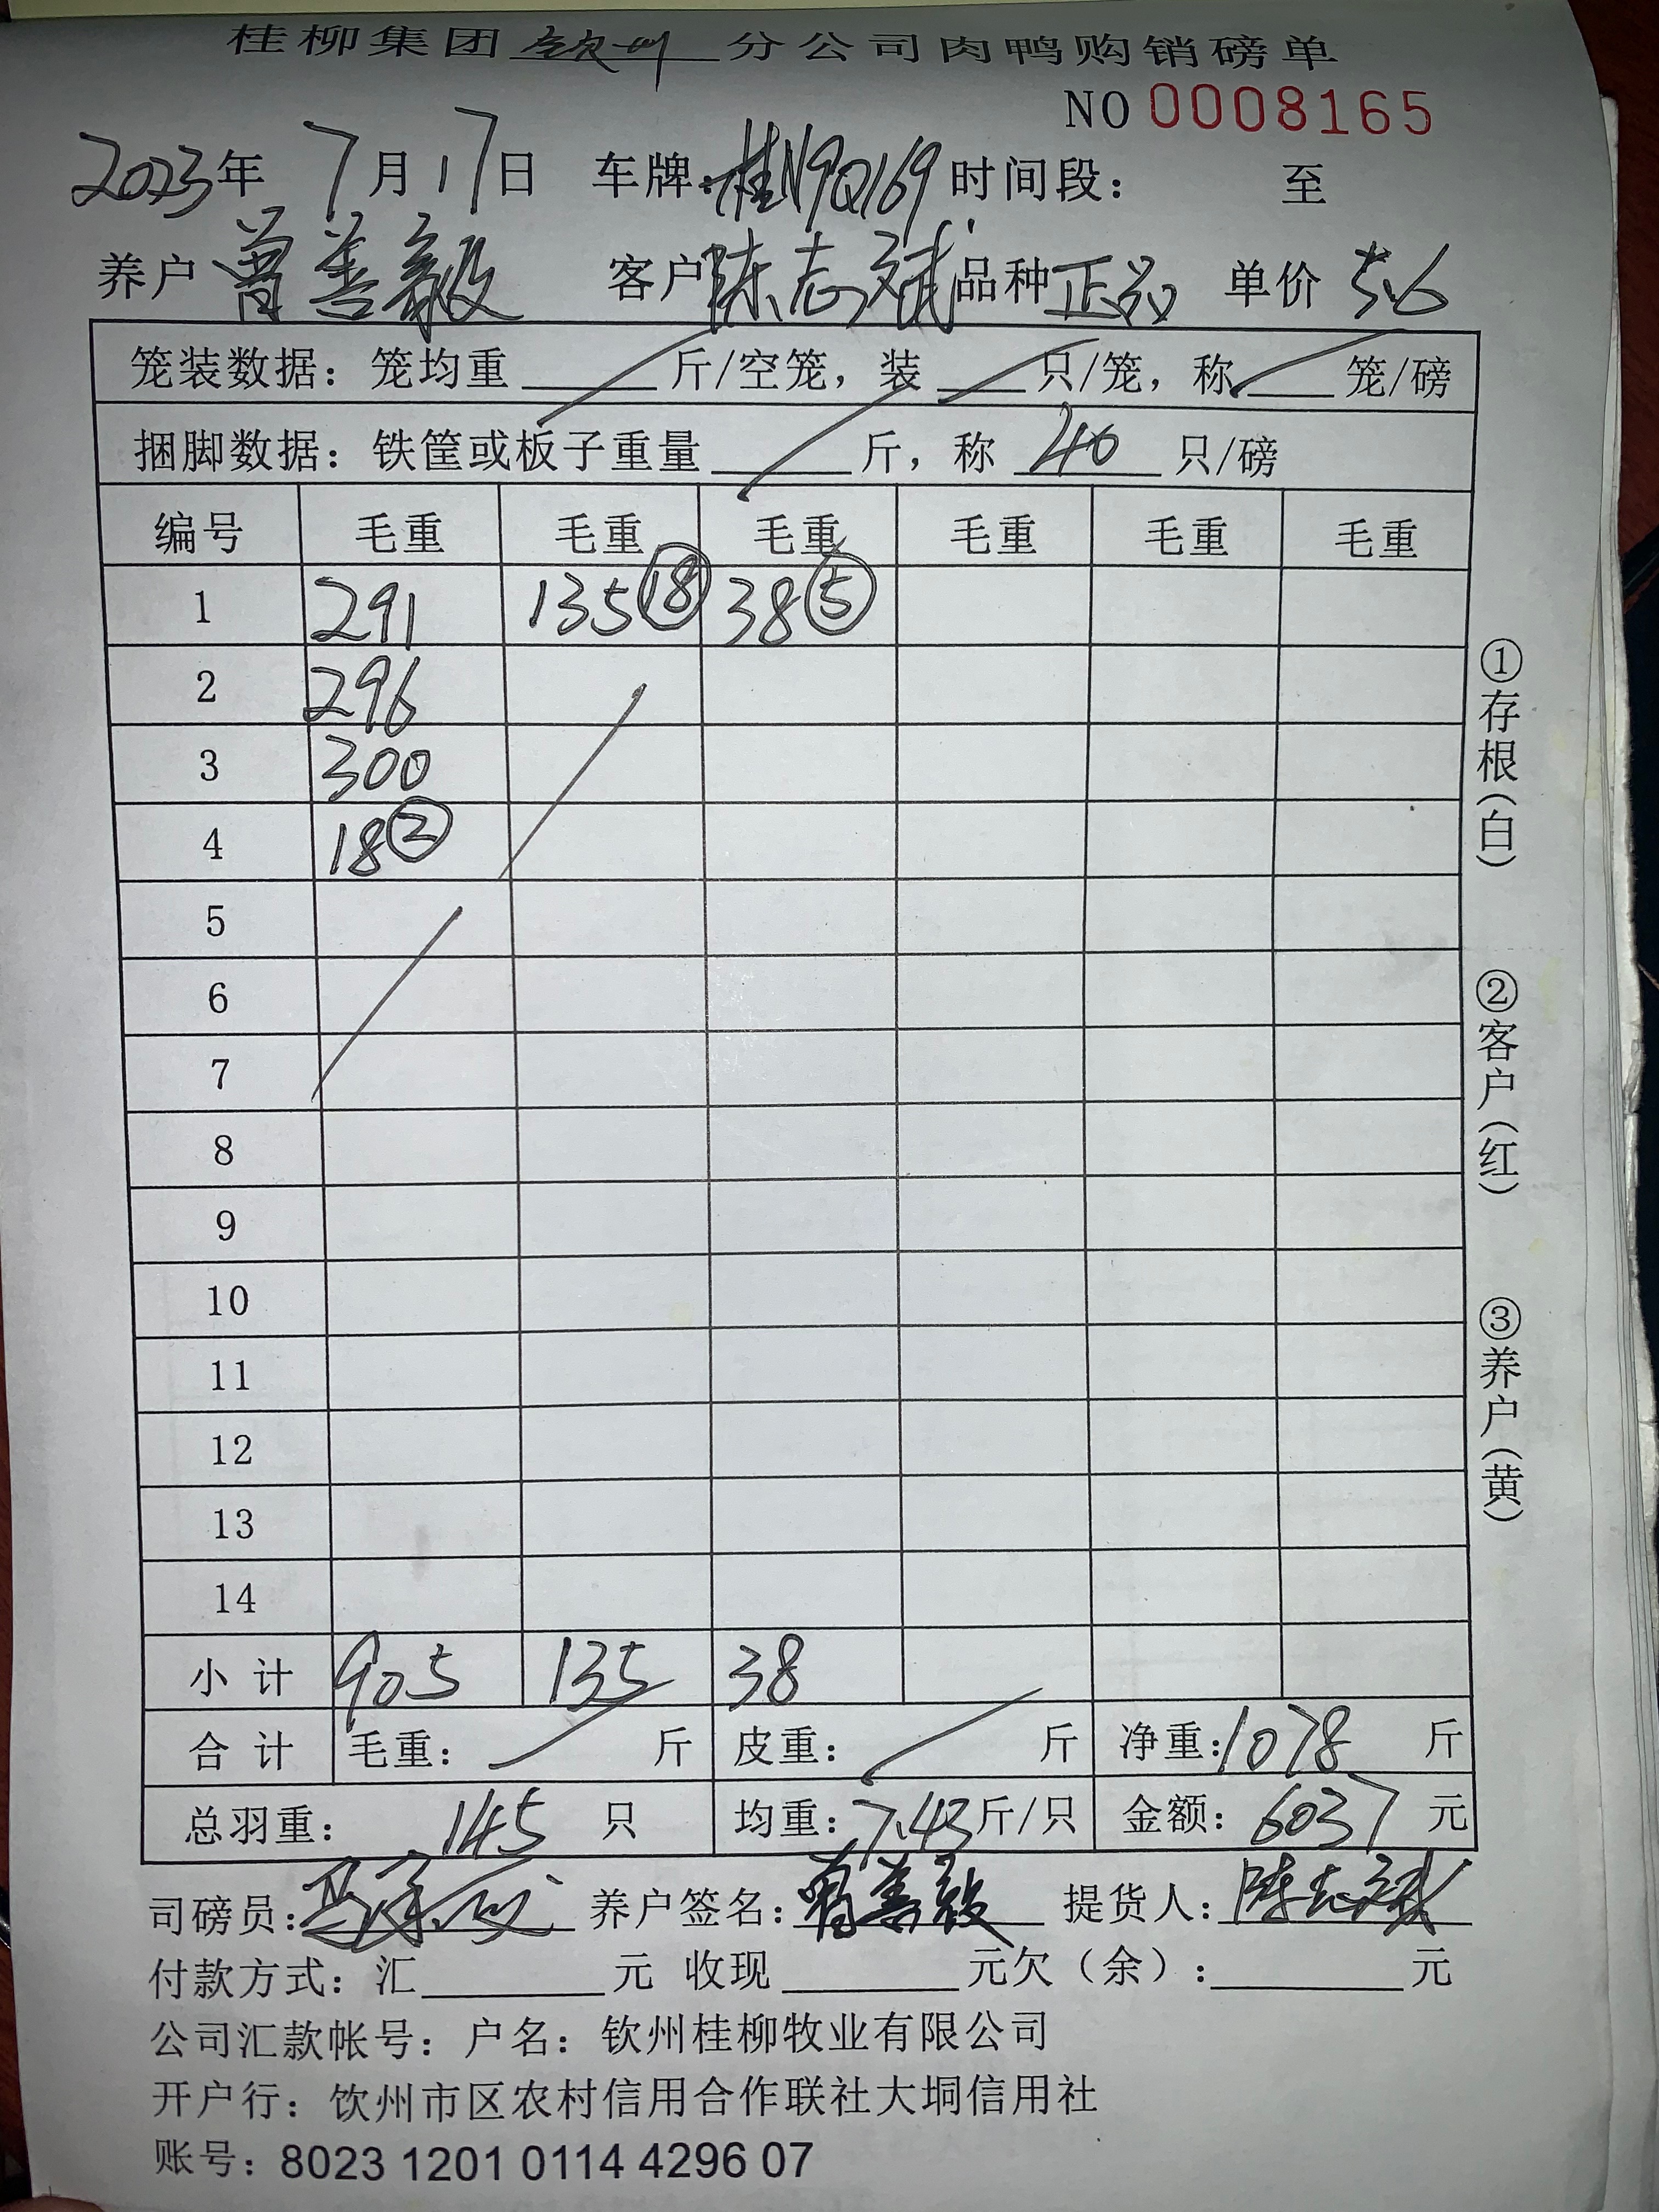 桂柳集团钦州分公司肉鸭购销磅单
NO 0008165
2023年 7月17日 车牌:桂N9Q169 时间段： 至
养户 曾善毅 客户 陈志斌 品种 正品 单价 5.6
笼装数据：笼均重____斤/空笼，装____只/笼，称____笼/磅
捆脚数据：铁筐或板子重量____斤，称 40 只/磅
编号 毛重 毛重 毛重 毛重 毛重 毛重
1 291 135⑱ 38⑤
2 296
3 300
4 18②
5
6
7
8
9
10
11
12
13
14
小计 905 135 38
合计 毛重： 斤 皮重： 斤 净重：1078 斤
总羽重： 145 只 均重：7.43斤/只 金额：6037元
司磅员： 养户签名：曾善毅 提货人：陈志斌
付款方式：汇____元 收现____元欠（余）:____元
公司汇款帐号：户名：钦州桂柳牧业有限公司
开户行：饮州市区农村信用合作联社大垌信用社
账号：8023 1201 0114 4296 07
①存根（白）
②客户（红）
③养户（黄）